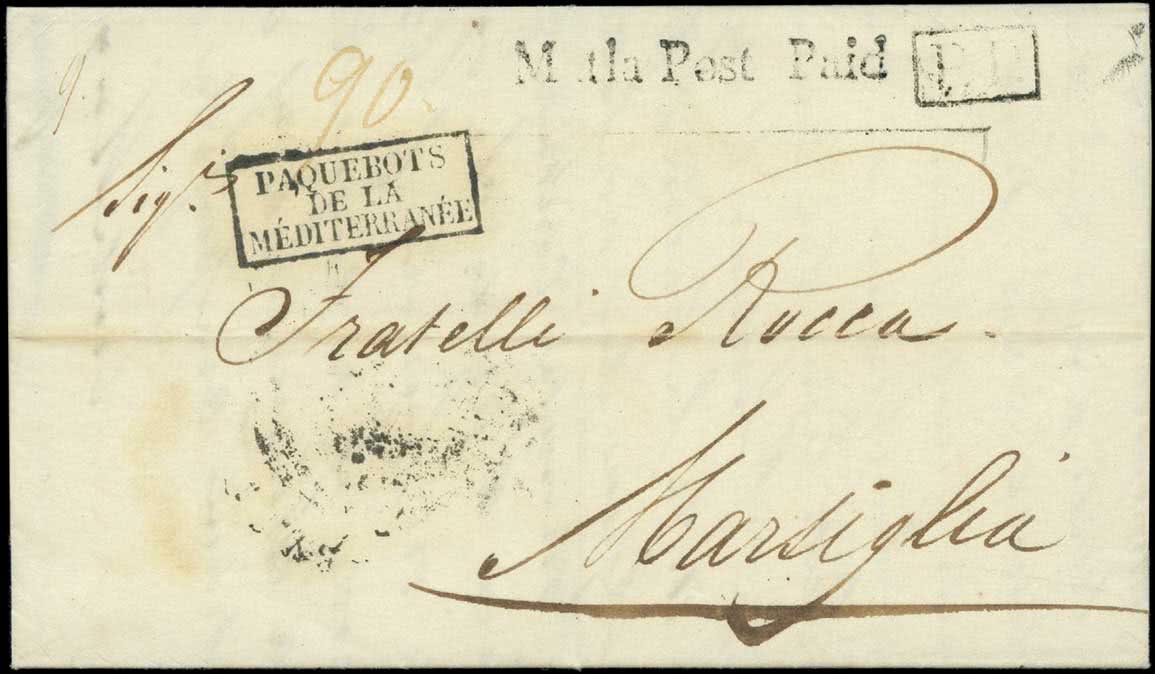 90
M tla Post Paid P.P.
Sig.ri
PAQUEBOTS
DE LA
MÉDITERRANÉE
Fratelli Rocca.
Marsiglia